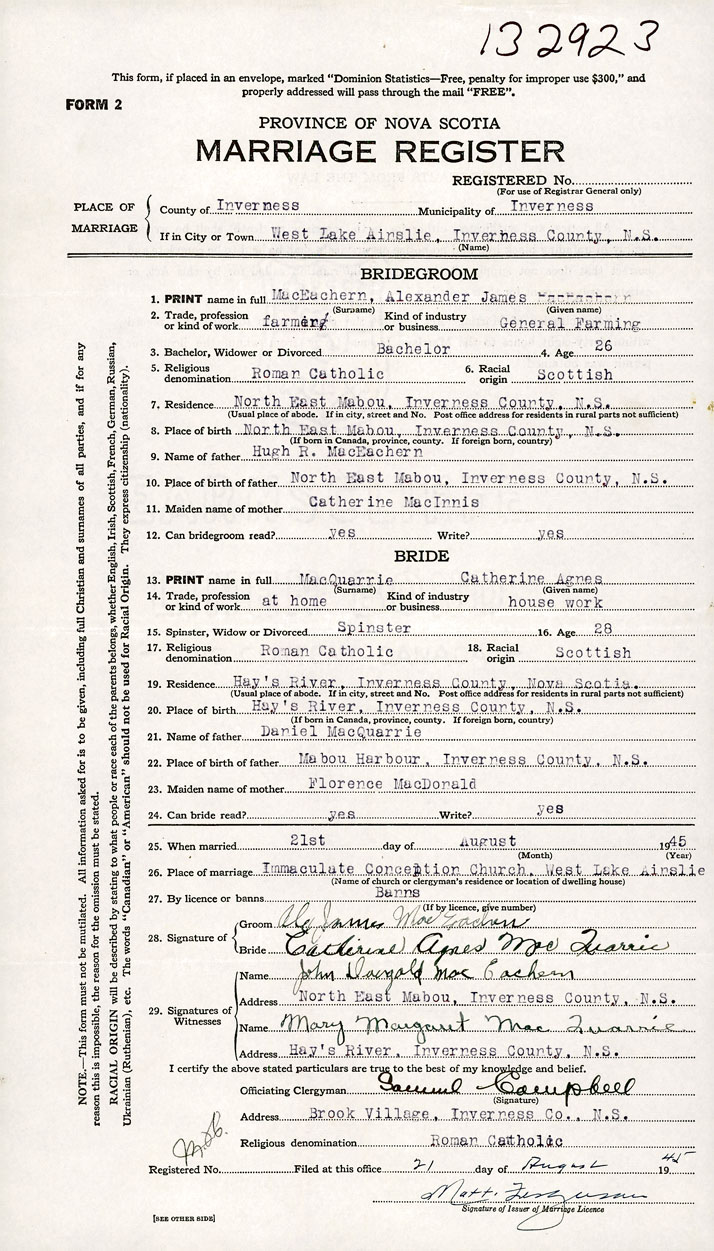 132923
This form, if placed in an envelope, marked "Dominion Statistics—Free, penalty for improper use $300," and
properly addressed will pass through the mail "FREE".
FORM 2
PROVINCE OF NOVA SCOTIA
MARRIAGE REGISTER
REGISTERED No.
(For use of Registrar General only)
PLACE OF MARRIAGE
County of Inverness Municipality of Inverness
If in City or Town West Lake Ainslie, Inverness County, N.S.
(Name)
BRIDEGROOM
1. PRINT name in full MacEachern, Alexander James
(Surname) (Given name)
2. Trade, profession or kind of work farmer Kind of industry or business General Farming
3. Bachelor, Widower or Divorced Bachelor 4. Age 26
5. Religious denomination Roman Catholic 6. Racial origin Scottish
7. Residence North East Mabou, Inverness County, N.S.
(Usual place of abode. If in city, street and No. Post office address for residents in rural parts not sufficient)
8. Place of birth North East Mabou, Inverness County, N.S.
(If born in Canada, province, county. If foreign born, country)
9. Name of father Hugh R. MacEachern
10. Place of birth of father North East Mabou, Inverness County, N.S.
11. Maiden name of mother Catherine MacInnis
12. Can bridegroom read? yes Write? yes
BRIDE
13. PRINT name in full MacQuarrie Catherine Agnes
(Surname) (Given name)
14. Trade, profession or kind of work at home Kind of industry or business house work
15. Spinster, Widow or Divorced Spinster 16. Age 28
17. Religious denomination Roman Catholic 18. Racial origin Scottish
19. Residence Hay's River, Inverness County, Nova Scotia.
(Usual place of abode. If in city, street and No. Post office address for residents in rural parts not sufficient)
20. Place of birth Hay's River, Inverness County, N.S.
(If born in Canada, province, county. If foreign born, country)
21. Name of father Daniel MacQuarrie
22. Place of birth of father Mabou Harbour, Inverness County, N.S.
23. Maiden name of mother Florence MacDonald
24. Can bride read? yes Write? yes
25. When married 21st day of August 1945
(Month) (Year)
26. Place of marriage Immaculate Conception Church, West Lake Ainslie
(Name of church or clergyman's residence or location of dwelling house)
27. By licence or banns Banns
(If by licence, give number)
28. Signature of
Groom Alex James MacEachern
Bride Catherine Agnes Mac Quarrie
29. Signatures of Witnesses
Name John Dougald Mac Eachern
Address North East Mabou, Inverness County, N.S.
Name Mary Margaret Mac Quarrie
Address Hay's River, Inverness County, N.S.
I certify the above stated particulars are true to the best of my knowledge and belief.
Officiating Clergyman Samuel Campbell
(Signature)
Address Brook Village, Inverness Co., N.S.
Religious denomination Roman Catholic
Registered No. Filed at this office 21 day of August 1945
Matt. Ferguson
Signature of Issuer of Marriage Licence
[SEE OTHER SIDE]
NOTE.—This form must not be mutilated. All information asked for is to be given, including full Christian and surnames of all parties, and if for any
reason this is impossible, the reason for the omission must be stated.
RACIAL ORIGIN will be described by stating to what people or race each of the parents belongs, whether English, Irish, Scottish, French, German, Russian,
Ukrainian (Ruthenian), etc. The words "Canadian" or "American" should not be used for Racial Origin. They express citizenship (nationality).